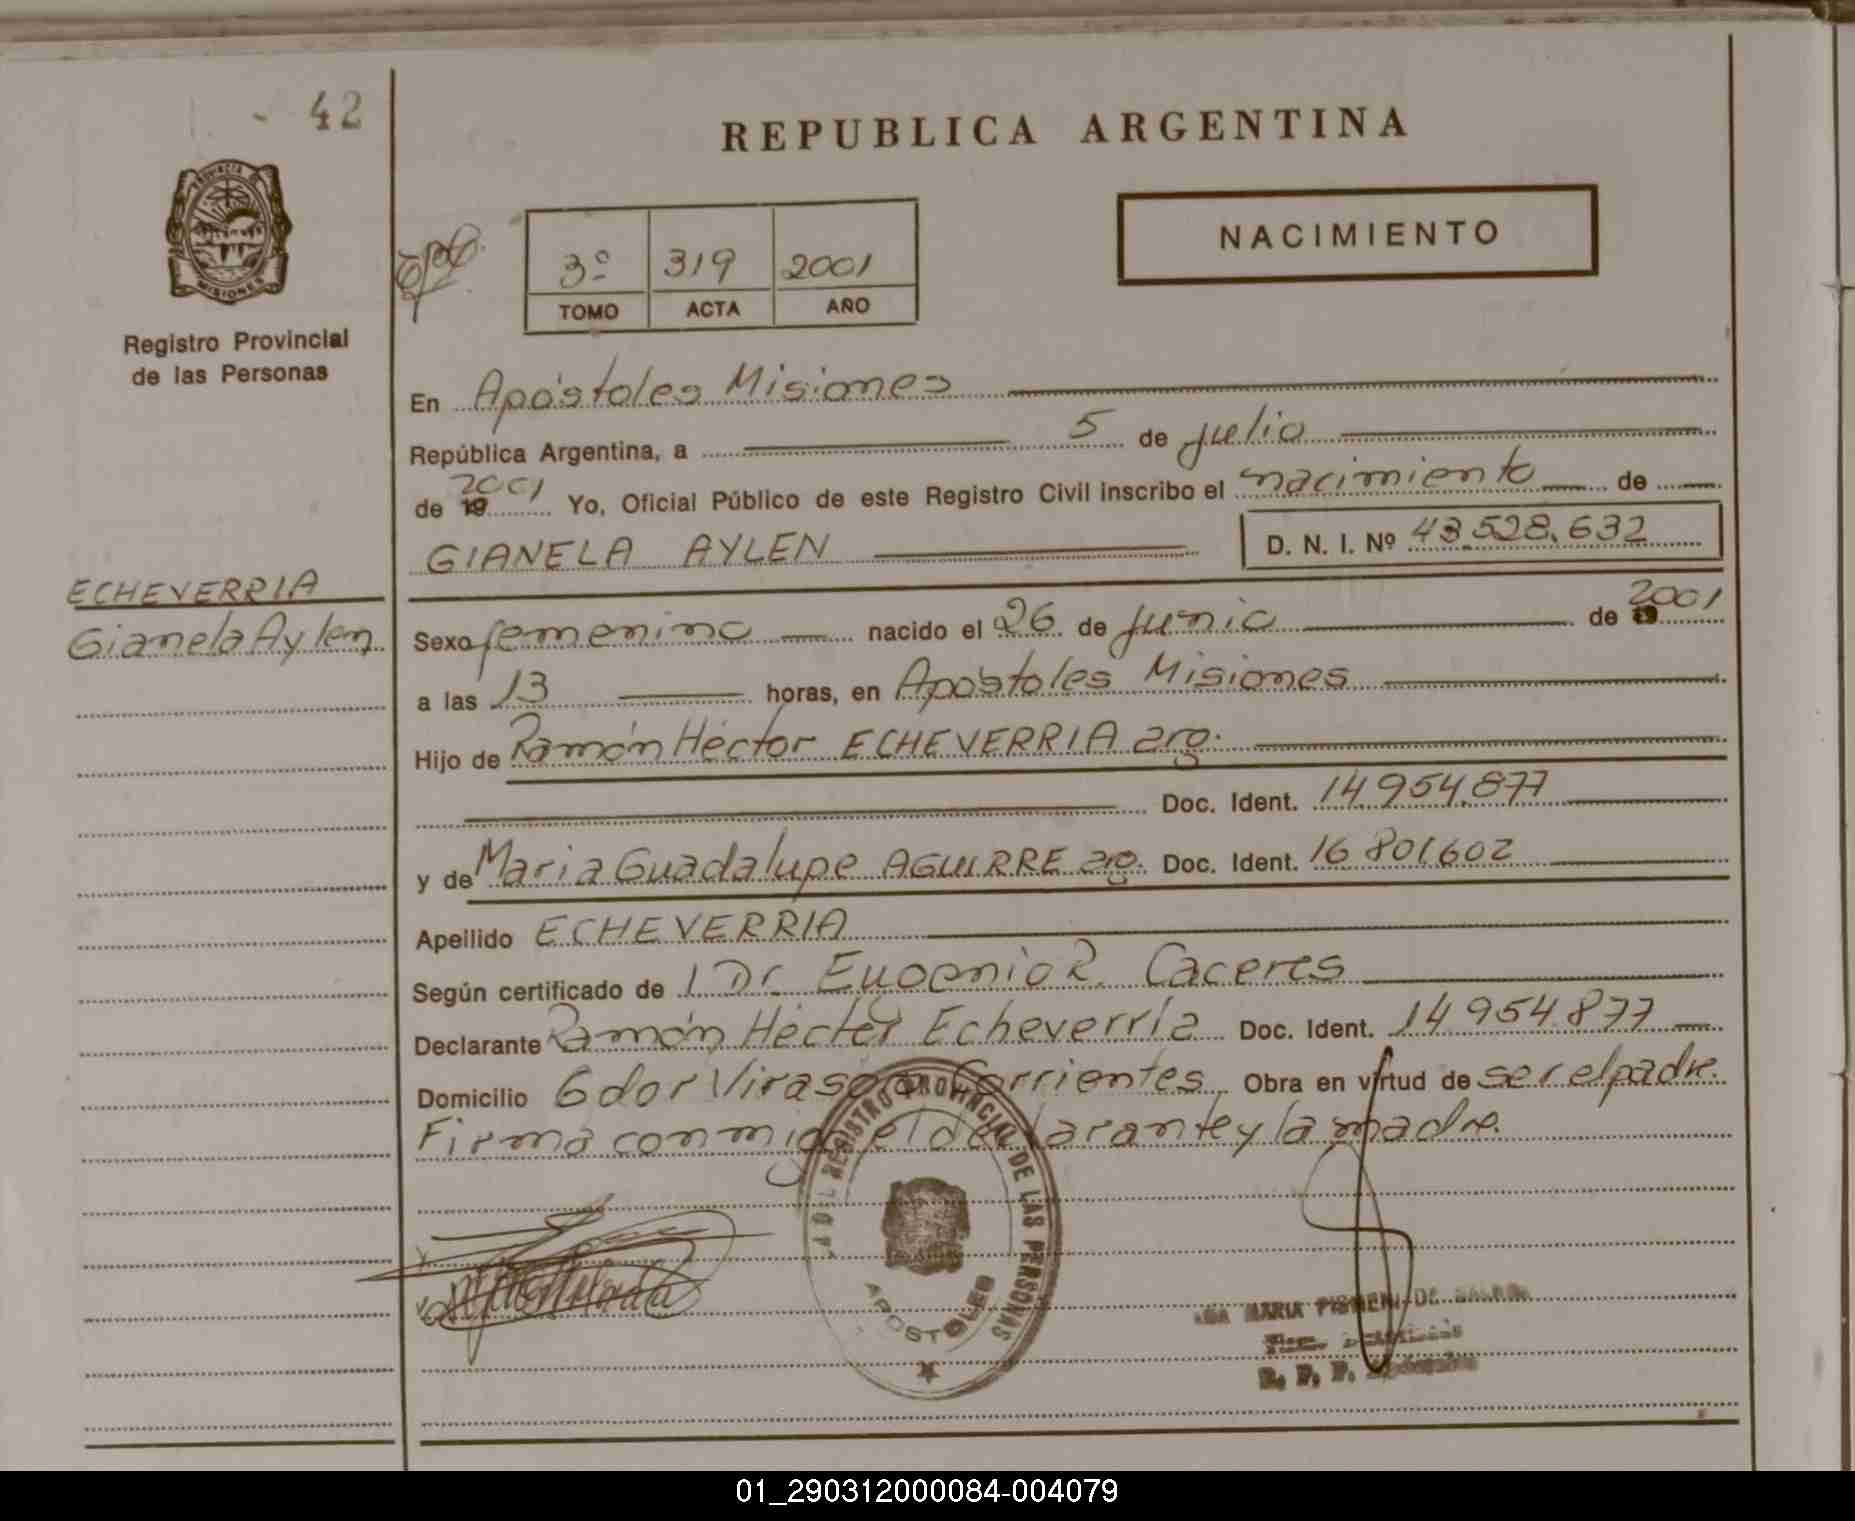 42
REPUBLICA ARGENTINA
PROVINCIA DE
MISIONES
Registro Provincial
de las Personas
3º 319 2001
TOMO ACTA AÑO
NACIMIENTO
En Apóstoles Misiones
República Argentina, a 5 de julio
de 19 2001 Yo, Oficial Público de este Registro Civil inscribo el nacimiento de
GIANELA AYLEN D. N. I. Nº 43.528.632
ECHEVERRIA
Gianela Aylen
Sexo femenino nacido el 26 de Junio de 19 2001
a las 13 horas, en Apóstoles Misiones
Hijo de Ramón Héctor ECHEVERRIA arg.
Doc. Ident. 14.954.877
y de Maria Guadalupe AGUIRRE arg. Doc. Ident. 16 801602
Apellido ECHEVERRIA
Según certificado de 1 Dr. Eugenio R. Caceres
Declarante Ramón Héctor Echeverría Doc. Ident. 14 954 877
Domicilio Gdor Virasoro Corrientes Obra en virtud de ser el padre.
Firma conmigo el declarante y la madre.
REGISTRO PROVINCIAL DE LAS PERSONAS
APOSTOLES
MARIA DE
R. P. P.
01_290312000084-004079